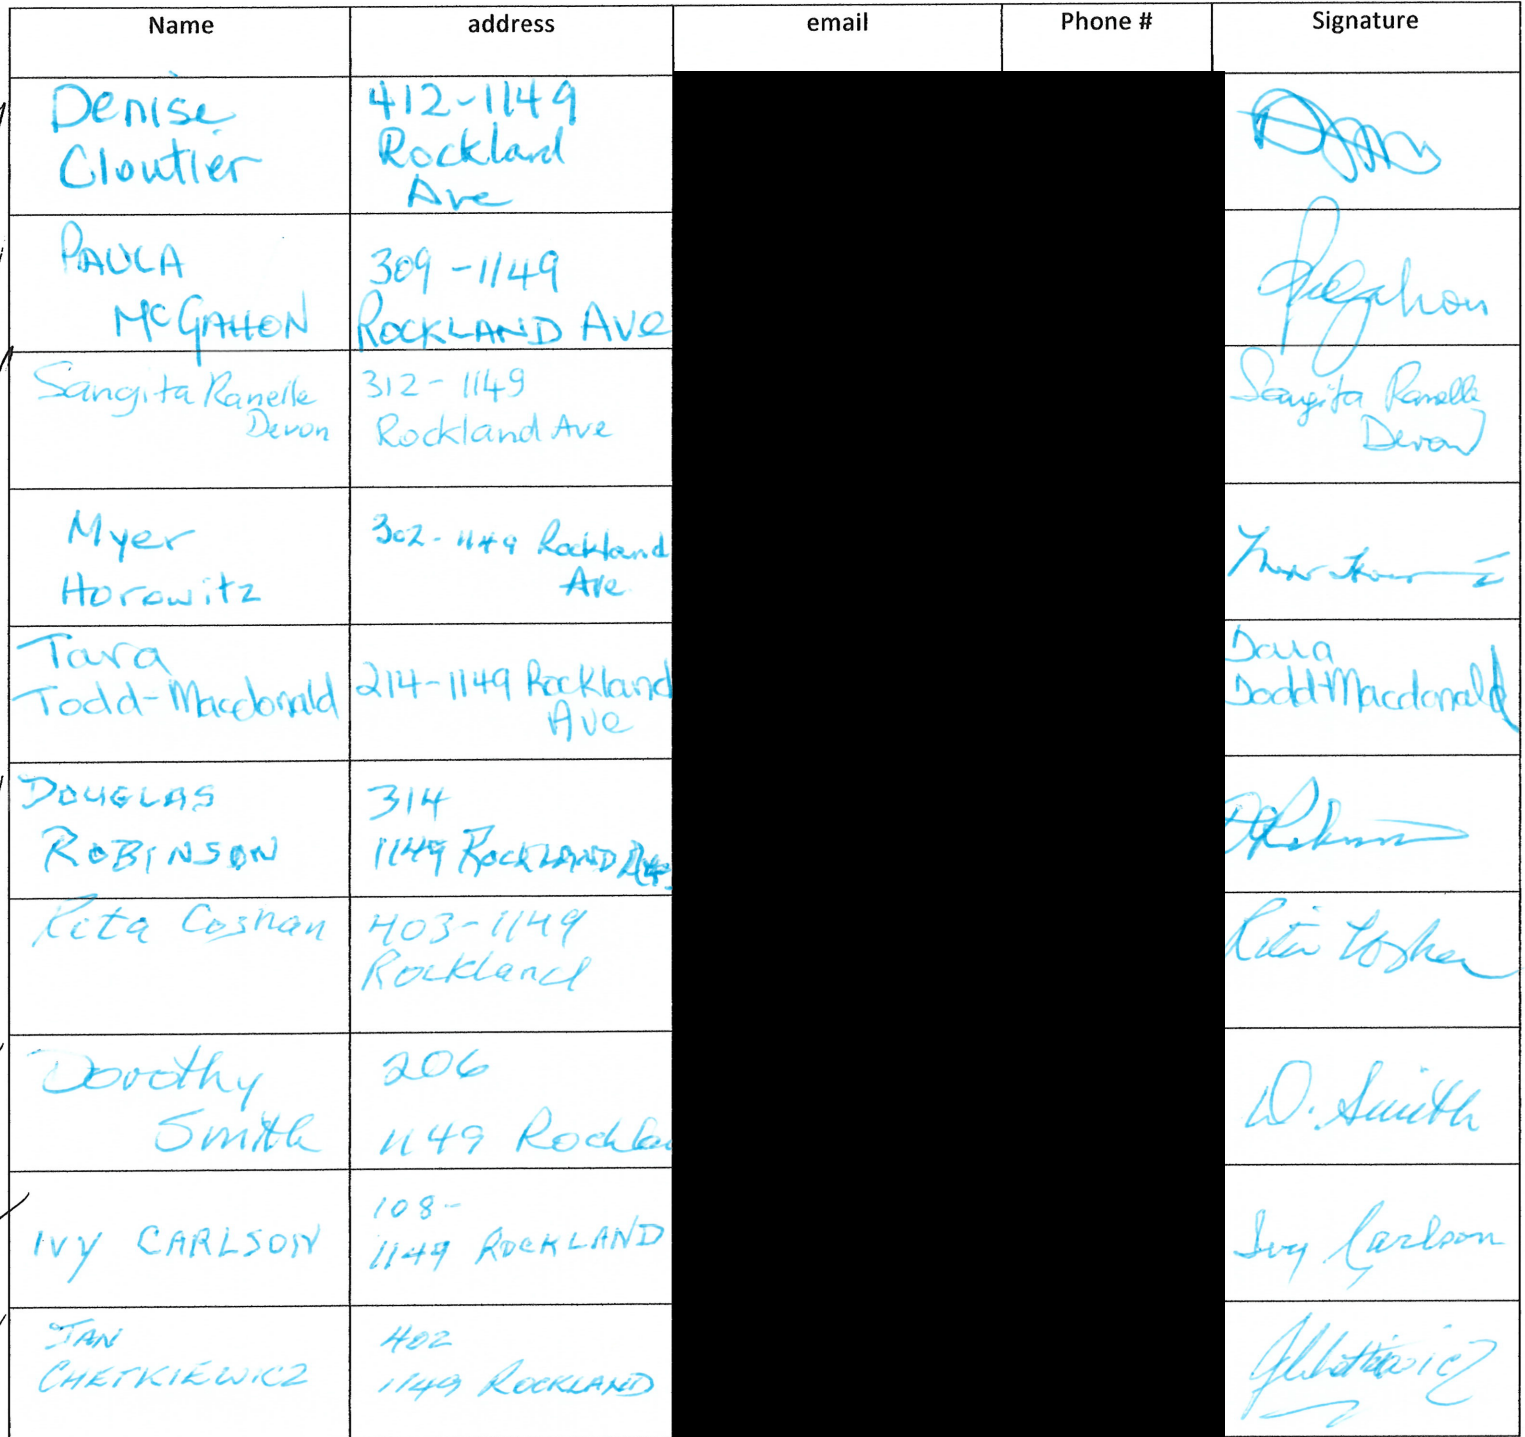 Name address email Phone # Signature
Denise
Cloutier
412-1149
Rockland
Ave
PAULA
McGAHON
309-1149
ROCKLAND AVE
Sangita Ranelle
Devon
312-1149
Rockland Ave
Sangita Ranelle
Devon
Myer
Horowitz
302-1149 Rockland
Ave
Tara
Todd-Macdonald
214-1149 Rockland
Ave
Tara
Todd-Macdonald
DOUGLAS
ROBINSON
314
1149 ROCKLAND Ave
Rita Coshan
403-1149
Rockland
Rita Coshan
Dorothy
Smith
206
1149 Rocklan
D. Smith
IVY CARLSON
108-
1149 ROCKLAND
Ivy Carlson
JAN
CHETKIEWICZ
402
1149 ROCKLAND